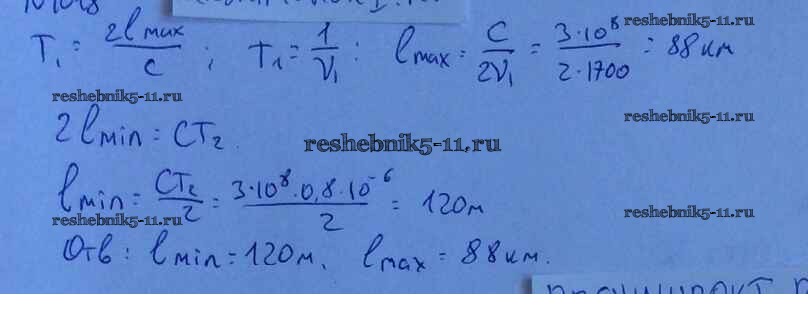 reshebnik5-11.ru
T₁ = 2lmax/c ; T₁ = 1/ν₁ ; lmax = c/2ν₁ = 3·10⁸/2·1700 = 88 км
reshebnik5-11.ru
reshebnik5-11.ru
2lmin = cT₂.
reshebnik5-11.ru
lmin = cT₂/2 = 3·10⁸·0,8·10⁻⁶/2 = 120м
reshebnik5-11.ru
reshebnik5-11.ru
Отв: lmin = 120м. lmax = 88 км.